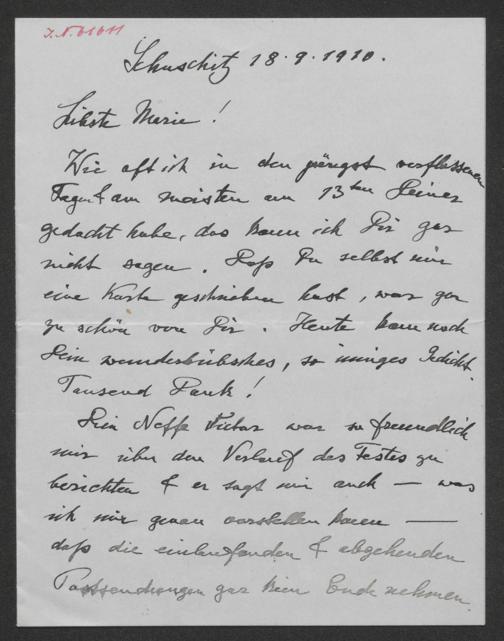 J.N. 61611
Schuschitz 18.9.1910.
Liebste Marie!
Wie oft ich in den jüngst verflossenen
Tagen & am meisten am 13ten Deiner
gedacht habe, das kann ich Dir gar
nicht sagen. Daß Du selbst mir
eine Karte geschrieben hast, war gar
zu schön von Dir. Heute kam noch
Dein wunderhübsches, so inniges Gedicht.
Tausend Dank!
Dein Neffe Victor war so freundlich
mir über den Verlauf des Festes zu
berichten & er sagt mir auch — was
ich mir genau vorstellen kann —
daß die einlaufenden & abgehenden
Postsendungen gar kein Ende nehmen.